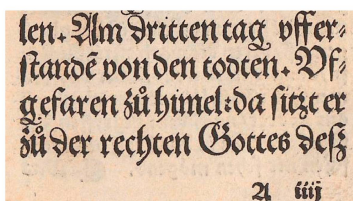 len. Am dritten tag vffer⸗
ſtandē von den todten. Vf⸗
gefaren zů himel: da ſitzt er
zů der rechten Gottes deſz
A iiij